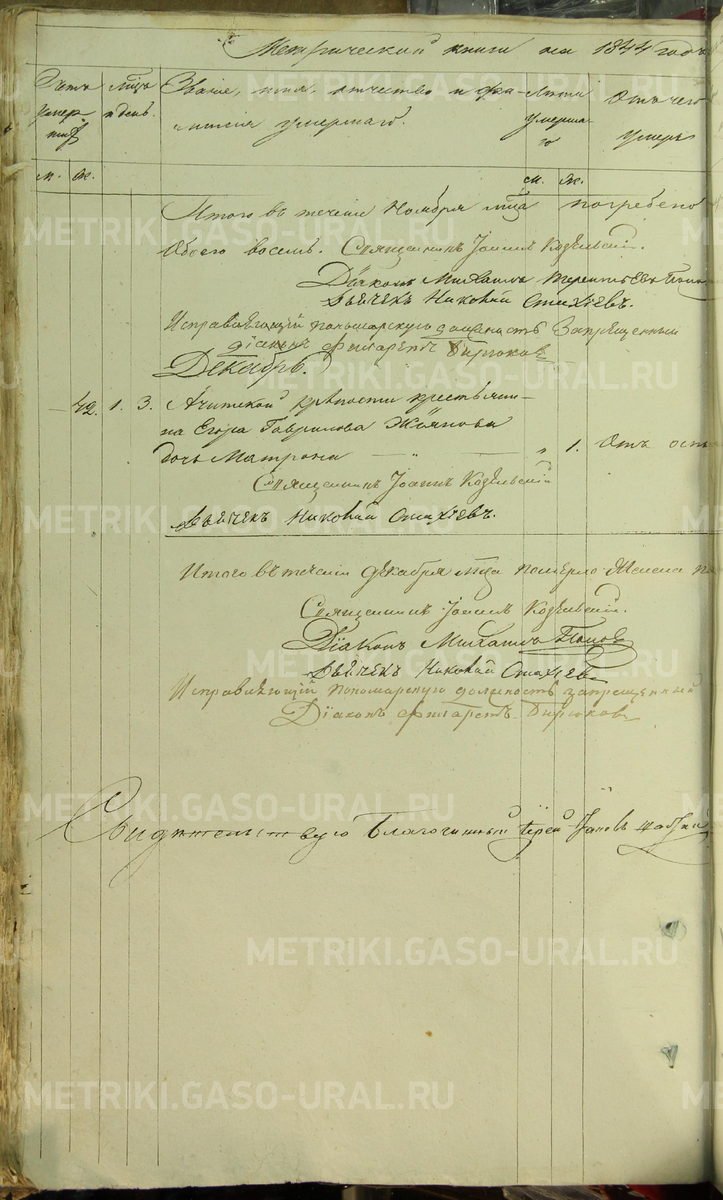 Метрической книги на 1844 годъ
Счетъ умершихъ
Мѣцъ и день.
Званіе, имя, отчество и фамилія умершаго.
Лѣта умершаго
Отъ чего умеръ
м. ж.
м. ж.
Итого въ теченіи Ноября мѣсца погребено
Обоего восемь. Священникъ Іоаннъ Козельскій.
Діаконъ Михаилъ Терентьевъ Попо
Дьячекъ Николай Стахѣевъ.
Исправляющій пономарскую должность Запрещенный
діаконъ Филаретъ Бирюковъ
Декабрь.
42. 1. 3. Ачитской крѣпости крестьяни-
на Егора Гаврилова
дочь Матрона — " — " 1. Отъ осп
Священникъ Іоаннъ Козельскій
Дьячекъ Николай Стахѣевъ.
Итого въ теченіи Декабря мѣсца померло Женска по
Священникъ Іоаннъ Козельскій.
Діаконъ Михаилъ Поповъ
Дьячекъ Николай Стахѣевъ
Исправляющій пономарскую должность запрещенный
Діаконъ Филаретъ Бирюковъ
Свидѣтельствую Благочинный Іерей Іаковъ
METRIKI.GASO-URAL.RU